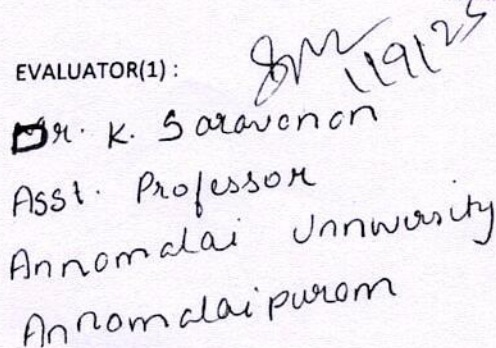 EVALUATOR(1) :
119125
Dr. K. Saravanan
Asst. Professor
Annamalai Unnwersity
Annamalaipuram